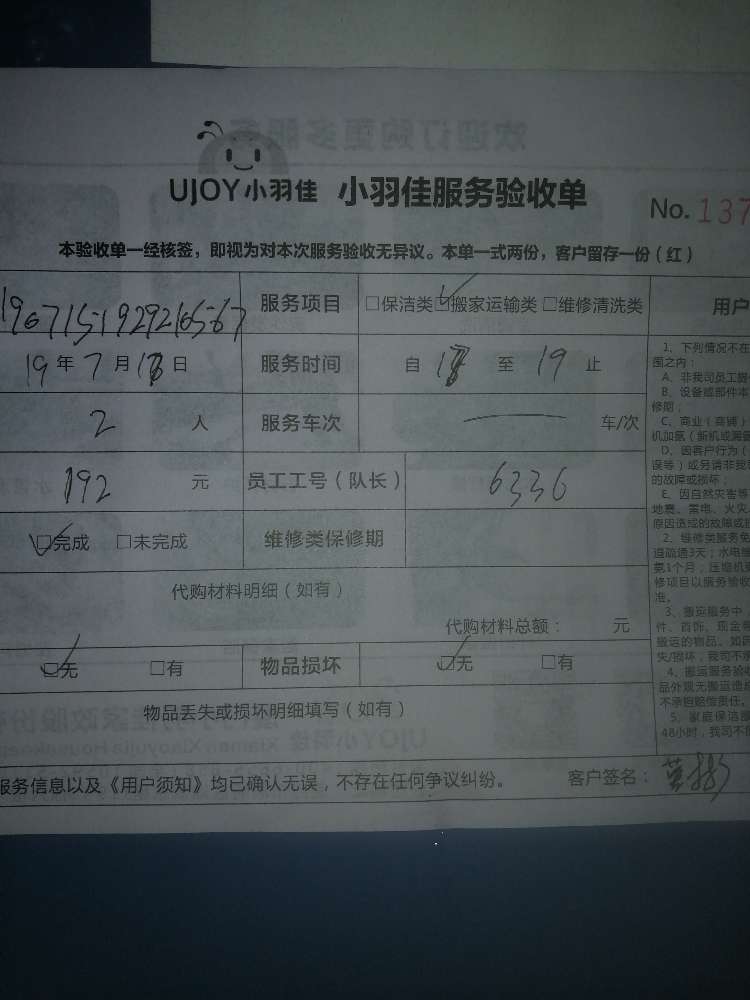 欢迎订购更多服务
UJOY小羽佳 小羽佳服务验收单
No. 137
本验收单一经核签，即视为对本次服务验收无异议。本单一式两份，客户留存一份（红）
服务项目 □保洁类 ☑搬家运输类 □维修清洗类 用户
19年7月18日 服务时间 自 18 至 19 止
2 人 服务车次 — 车/次
192 元 员工工号（队长） 6336
☑完成 □未完成 维修类保修期
代购材料明细（如有）
代购材料总额： 元
☑无 □有 物品损坏 ☑无 □有
物品丢失或损坏明细填写（如有）
服务信息以及《用户须知》均已确认无误，不存在任何争议纠纷。 客户签名：
1、下列情况不在
围之内：
A、非我司员工提
B、设备或部件本
修期；
C、商业（商铺）
机加氨（新机或漏
D、因客户行为（
误等）或另请非我
的故障或损坏；
E、因自然灾害等
地震、雷电、火灾
原因造成的故障或
2、维修类服务免
道疏通3天；水电
氨1个月；压缩机
修项目以服务验收
准。
3、搬运服务中，
件、首饰、现金
搬运的物品。如因
失/损坏，我司不承
4、搬运服务验收
品外观无搬运造成
不承担赔偿责任。
5、家庭保洁服
48小时，我司不